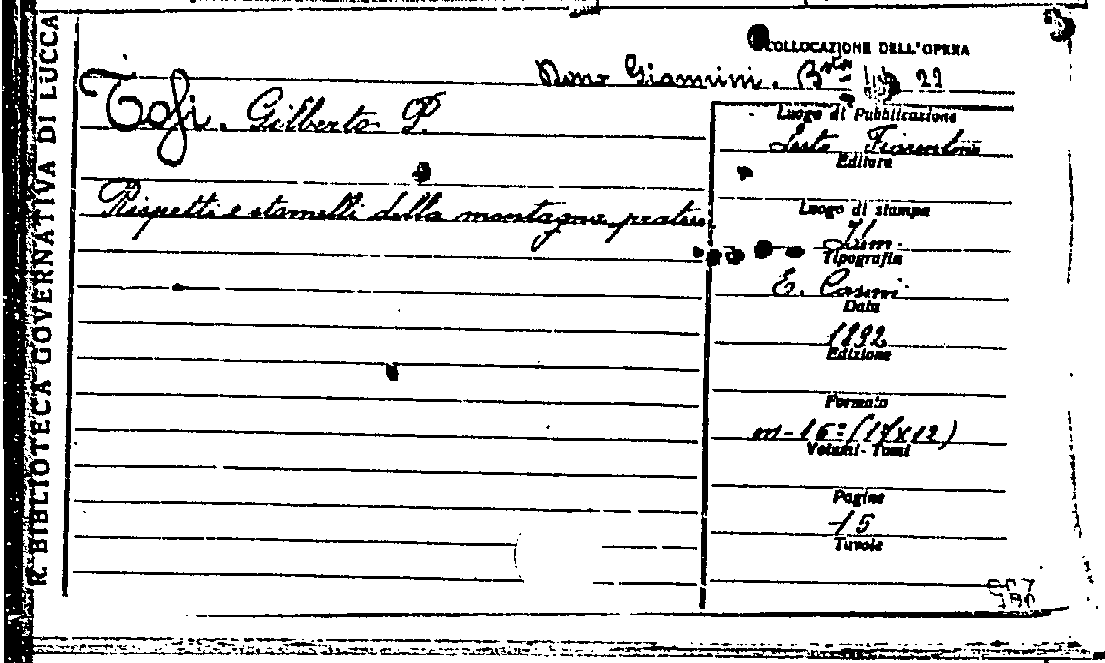 R. BIBLIOTECA GOVERNATIVA DI LUCCA
COLLOCAZIONE DELL'OPERA
Dono Giannini. 22
Tofi. Gilberto P.
Luogo di Pubblicazione
Sesto Fiorentino
Editore
Rispetti e stornelli della montagna
Luogo di stampa
Tipografia
E. Casini
Data
1892
Edizione
Formato
in-16º (17x12)
Volumi-Tomi
Pagine
15
Tavole